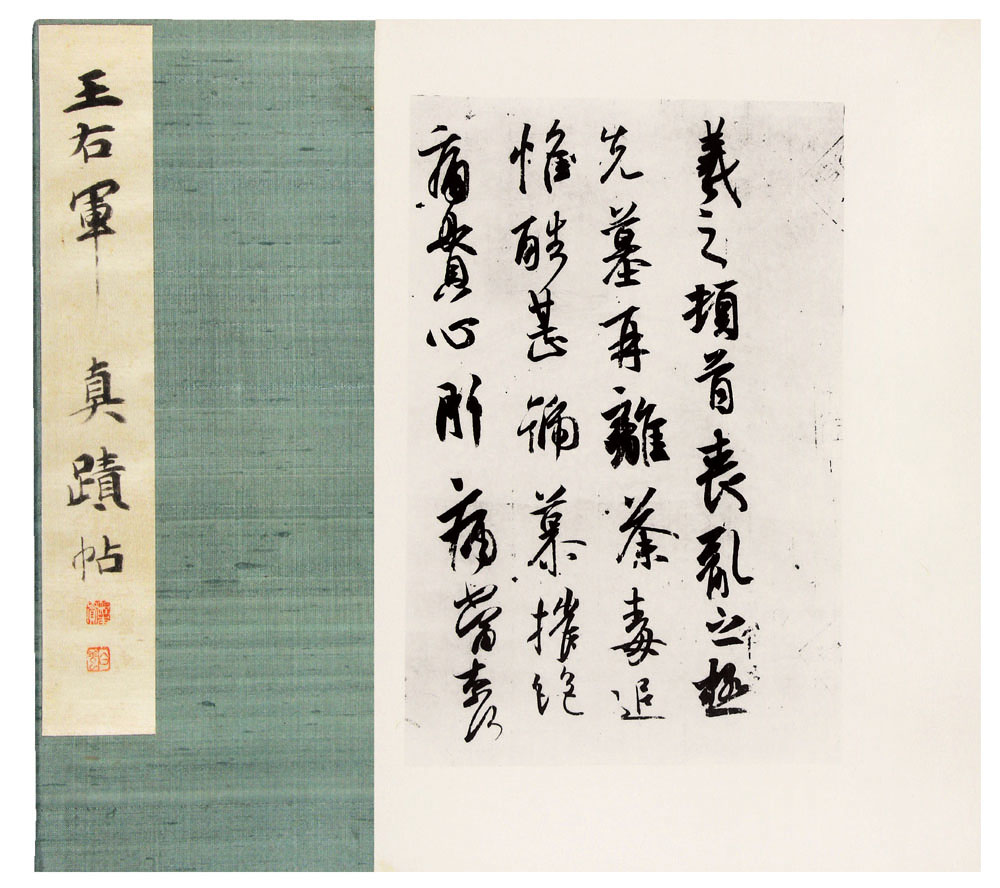 王右軍 真蹟帖
羲之頓首喪亂之極
先墓再離荼毒追
惟酷甚號慕摧絕
痛貫心肝痛當奈何